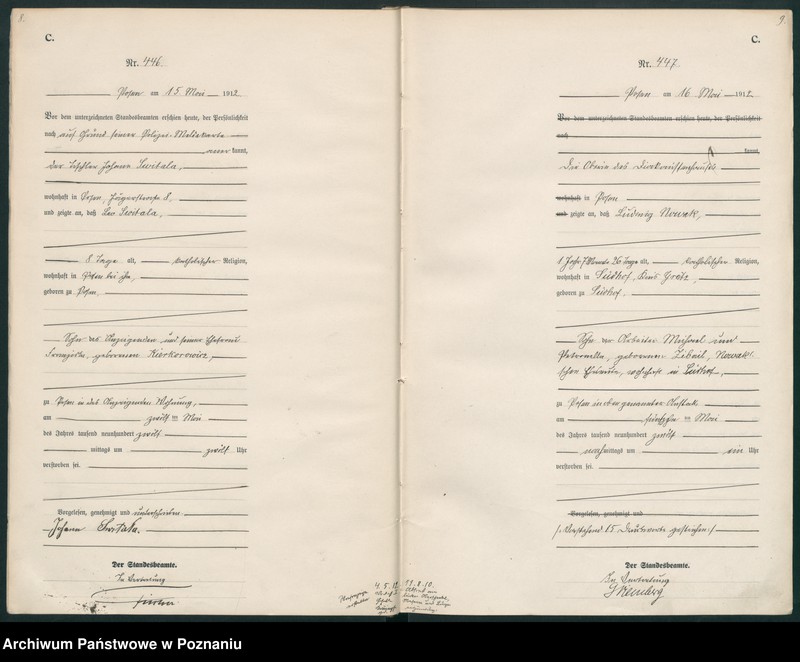 8.
C.
Nr. 446
Posen am 15 Mai 1912
Vor dem unterzeichneten Standesbeamten erschien heute, der Persönlichkeit
nach auf Grund seiner Polizei-Meldekarte
kannt,
der Tischler Johann Switala,
wohnhaft in Posen, Jägerstrasse 8,
und zeigte an, daß Leo Switala,
8 Tage alt, katholischer Religion,
wohnhaft in Posen bei ihm,
geboren zu Posen,
Sohn des Anzeigenden und seiner Ehefrau
Franziska, geborenen
zu Posen in des Anzeigenden Wohnung,
am zwölften Mai
des Jahres tausend neunhundert zwölf
mittags um zwölf Uhr
verstorben sei.
Vorgelesen, genehmigt und unterschrieben.
Johann Switala.
Der Standesbeamte.
In Vertretung
9.
C.
Nr. 447
Posen am 16 Mai 1912
Vor dem unterzeichneten Standesbeamten erschien heute, der Persönlichkeit
nach
kannt,
Die Oberin des Diakonissenhauses
wohnhaft in Posen
und zeigte an, daß Ludwig Nowak,
1 Jahr 7 Monate 26 Tage alt, katholischer Religion,
wohnhaft in Südhof, Kreis Grätz,
geboren zu Südhof,
Sohn der Arbeiter Michael und
Petronella, geborenen Nowak'
schen Eheleute, wohnhaft in Südhof,
zu Posen in obengenannter Anstalt
am fünfzehnten Mai
des Jahres tausend neunhundert zwölf
nachmittags um ein Uhr
verstorben sei.
Vorgelesen, genehmigt und
/: Vorstehend 15 Druckworte gestrichen :/
Der Standesbeamte.
In Vertretung
Archiwum Państwowe w Poznaniu